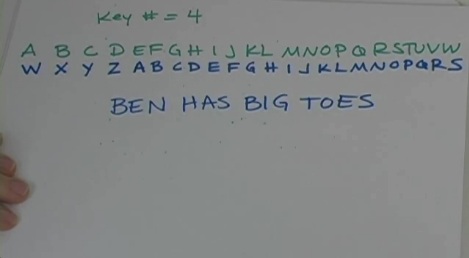 Key # = 4
A B C D E F G H I J K L M N O P Q R S T U V W
W X Y Z A B C D E F G H I J K L M N O P Q R S
BEN HAS BIG TOES